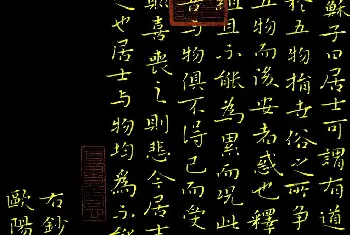 蘇子曰居士可謂有道
於五物捐世俗之所爭
五物而後安者惑也釋
組且不能為累而況此
吾與物俱不得已而受
則喜喪之則悲今居士
之也居士與物均為不
右鈔
歐陽